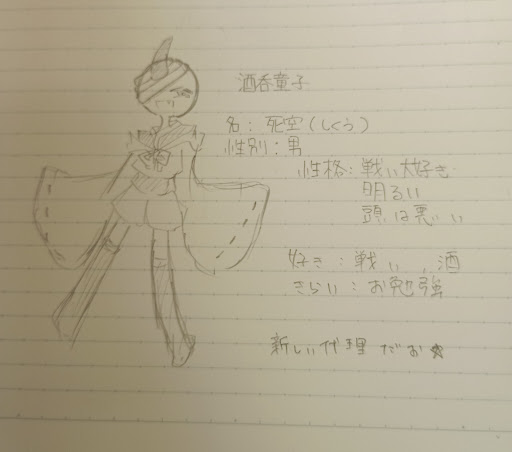 酒呑童子
名：死空（しくう）
性別：男
性格：戦い大好き
明るい
頭は悪い
好き：戦い，酒
きらい：お勉強
新しい代理だお☆